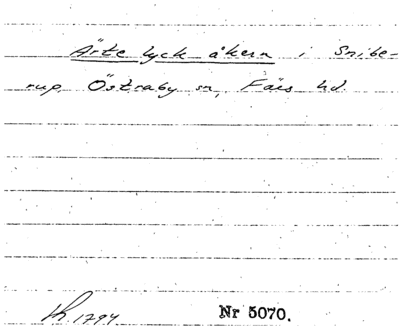 Ärte lyck åkern i Snibe-
rup, Östraby sn, Färs hd.
lh 1794 Nr 5070.